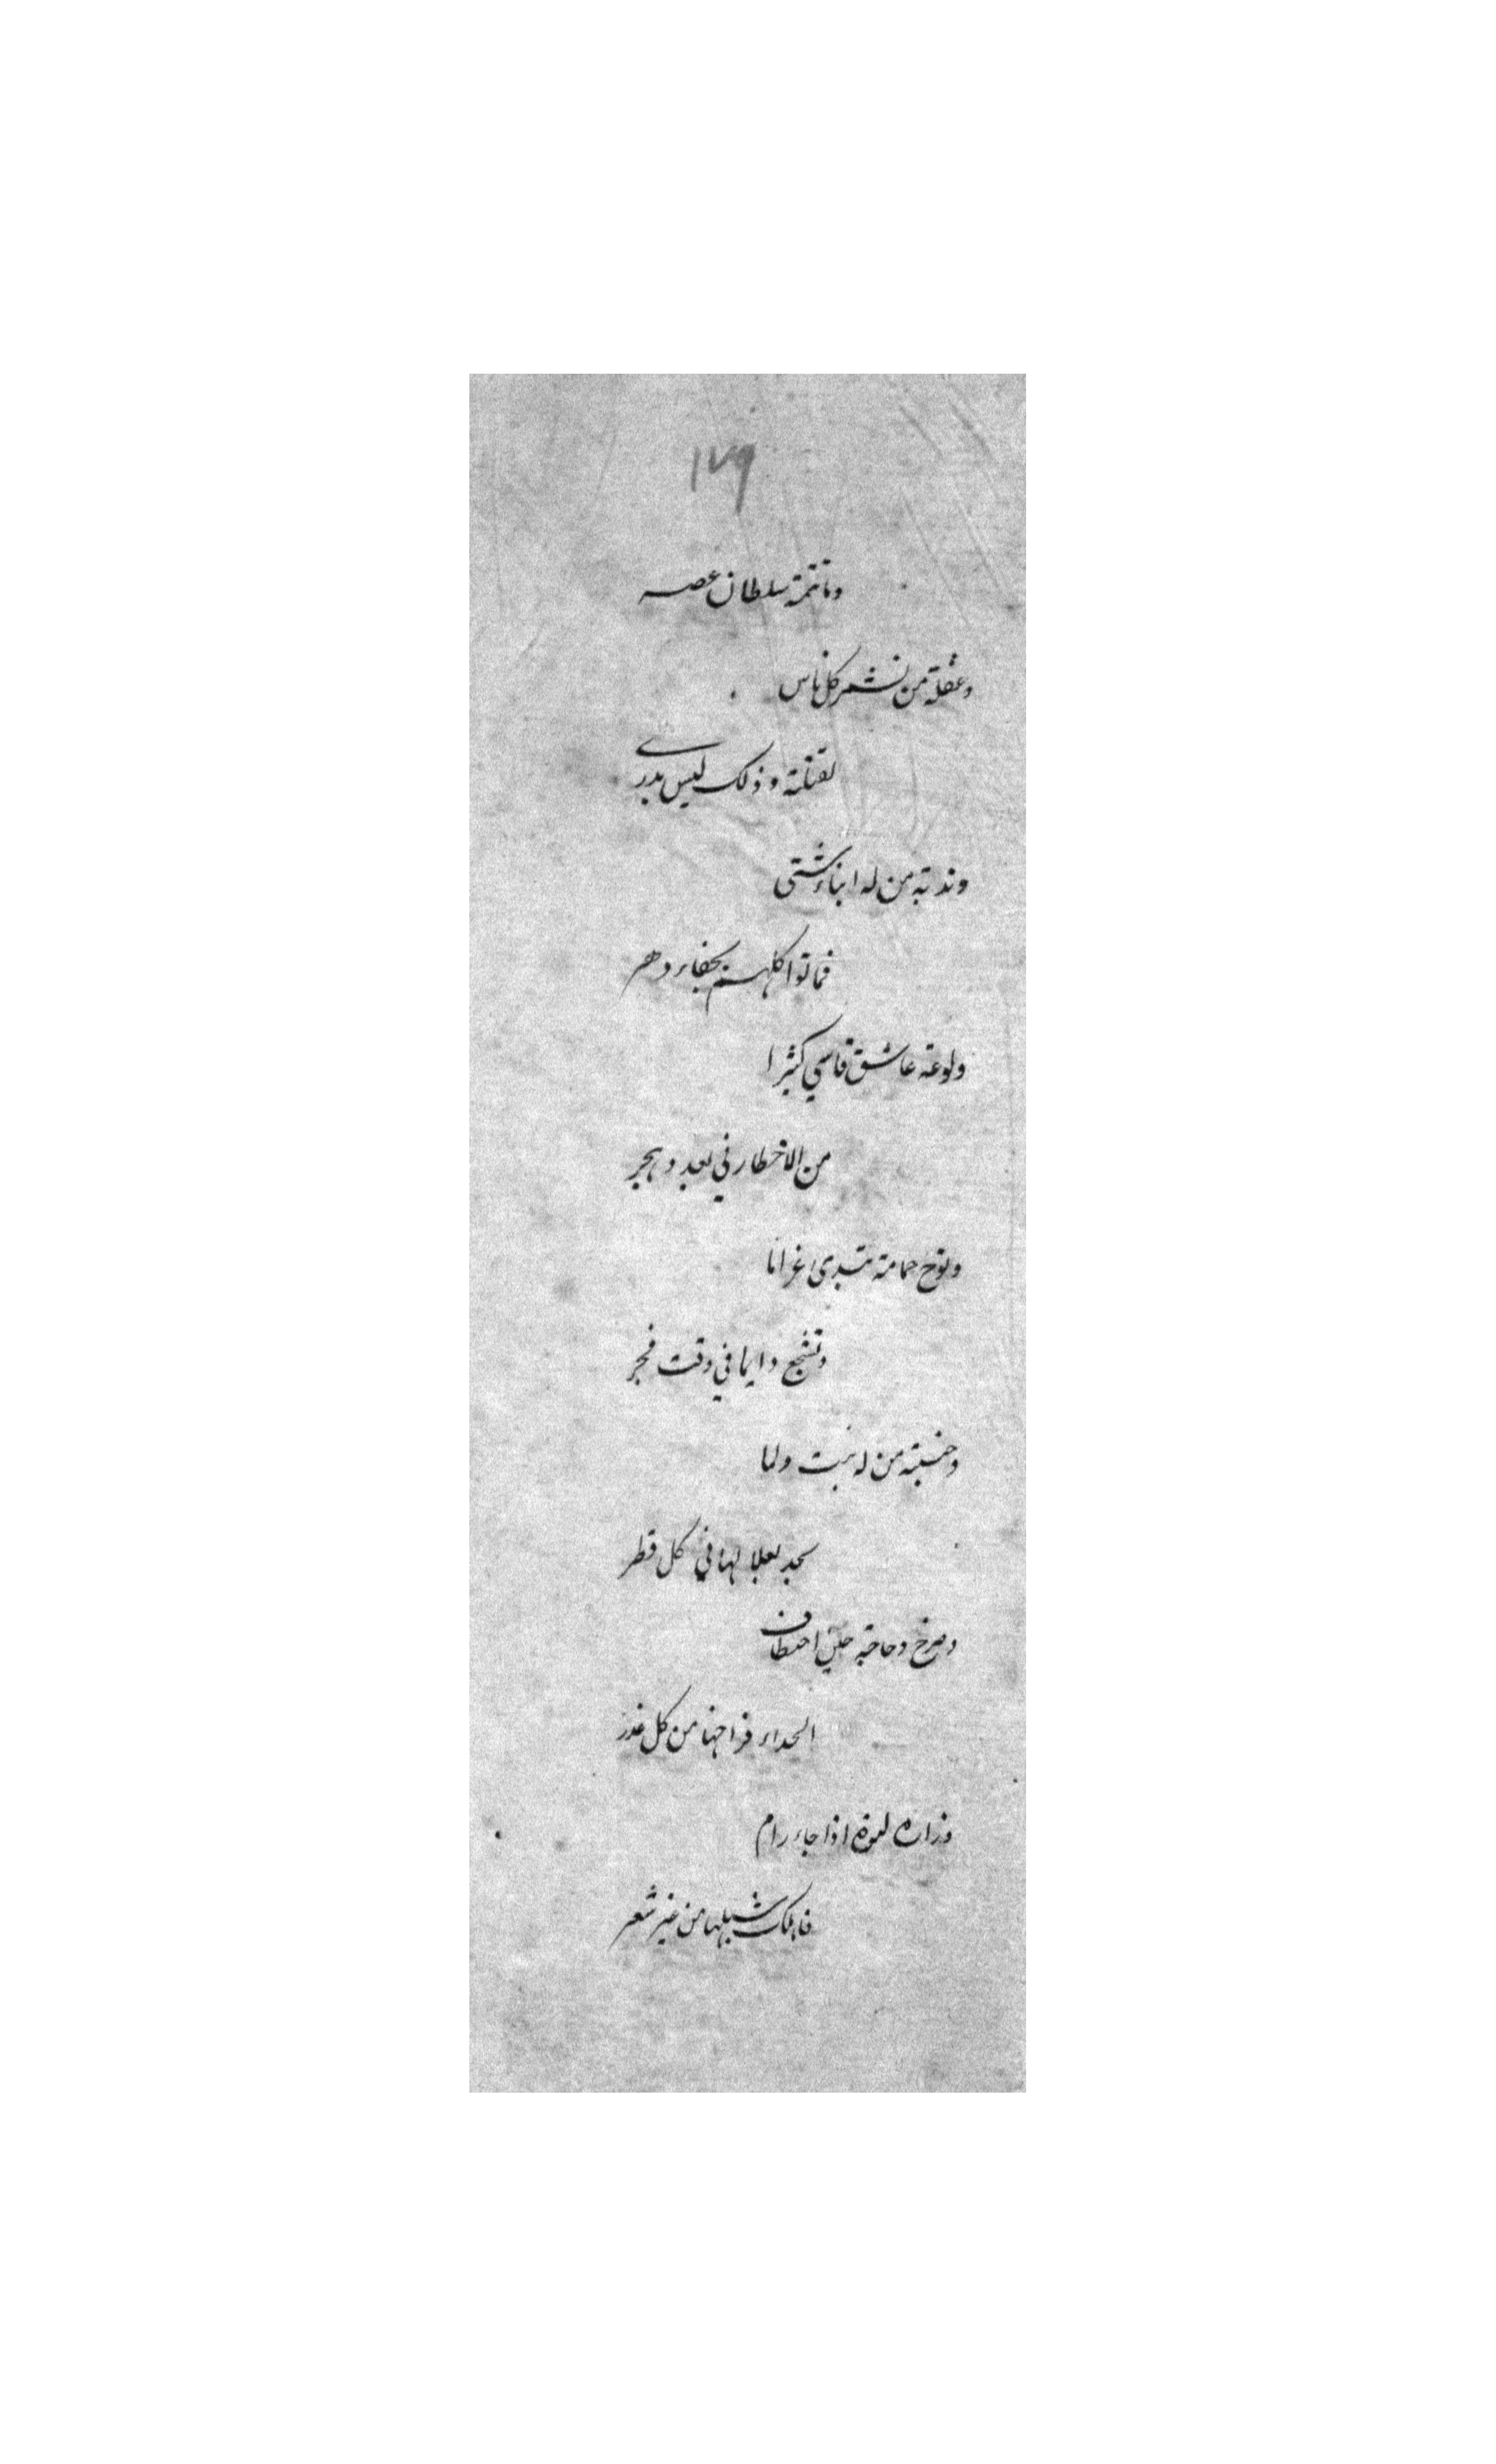 ١٧٩
سلطان عصر
وغفلة من تشمر كل ناس
لقتلته وذلك ليس يدرى
وندبة من له ابناء شتى
فماتوا كلهم بجفاء دهر
ولوعة عاشق قاسى كثيرا
من الاخطار في بعد وهجر
ونوح حمامة تبدى غراما
وتسجع دايما في وقت فجر
وخيبة من له بنت ولما
يجد بعلا لها في كل قطر
وصرخ دجاجة حين اختطاف
الحداء فراخها من كل غدر
وزارة لبوة اذا جاء رام
فاهلك شبلها من غير شعر